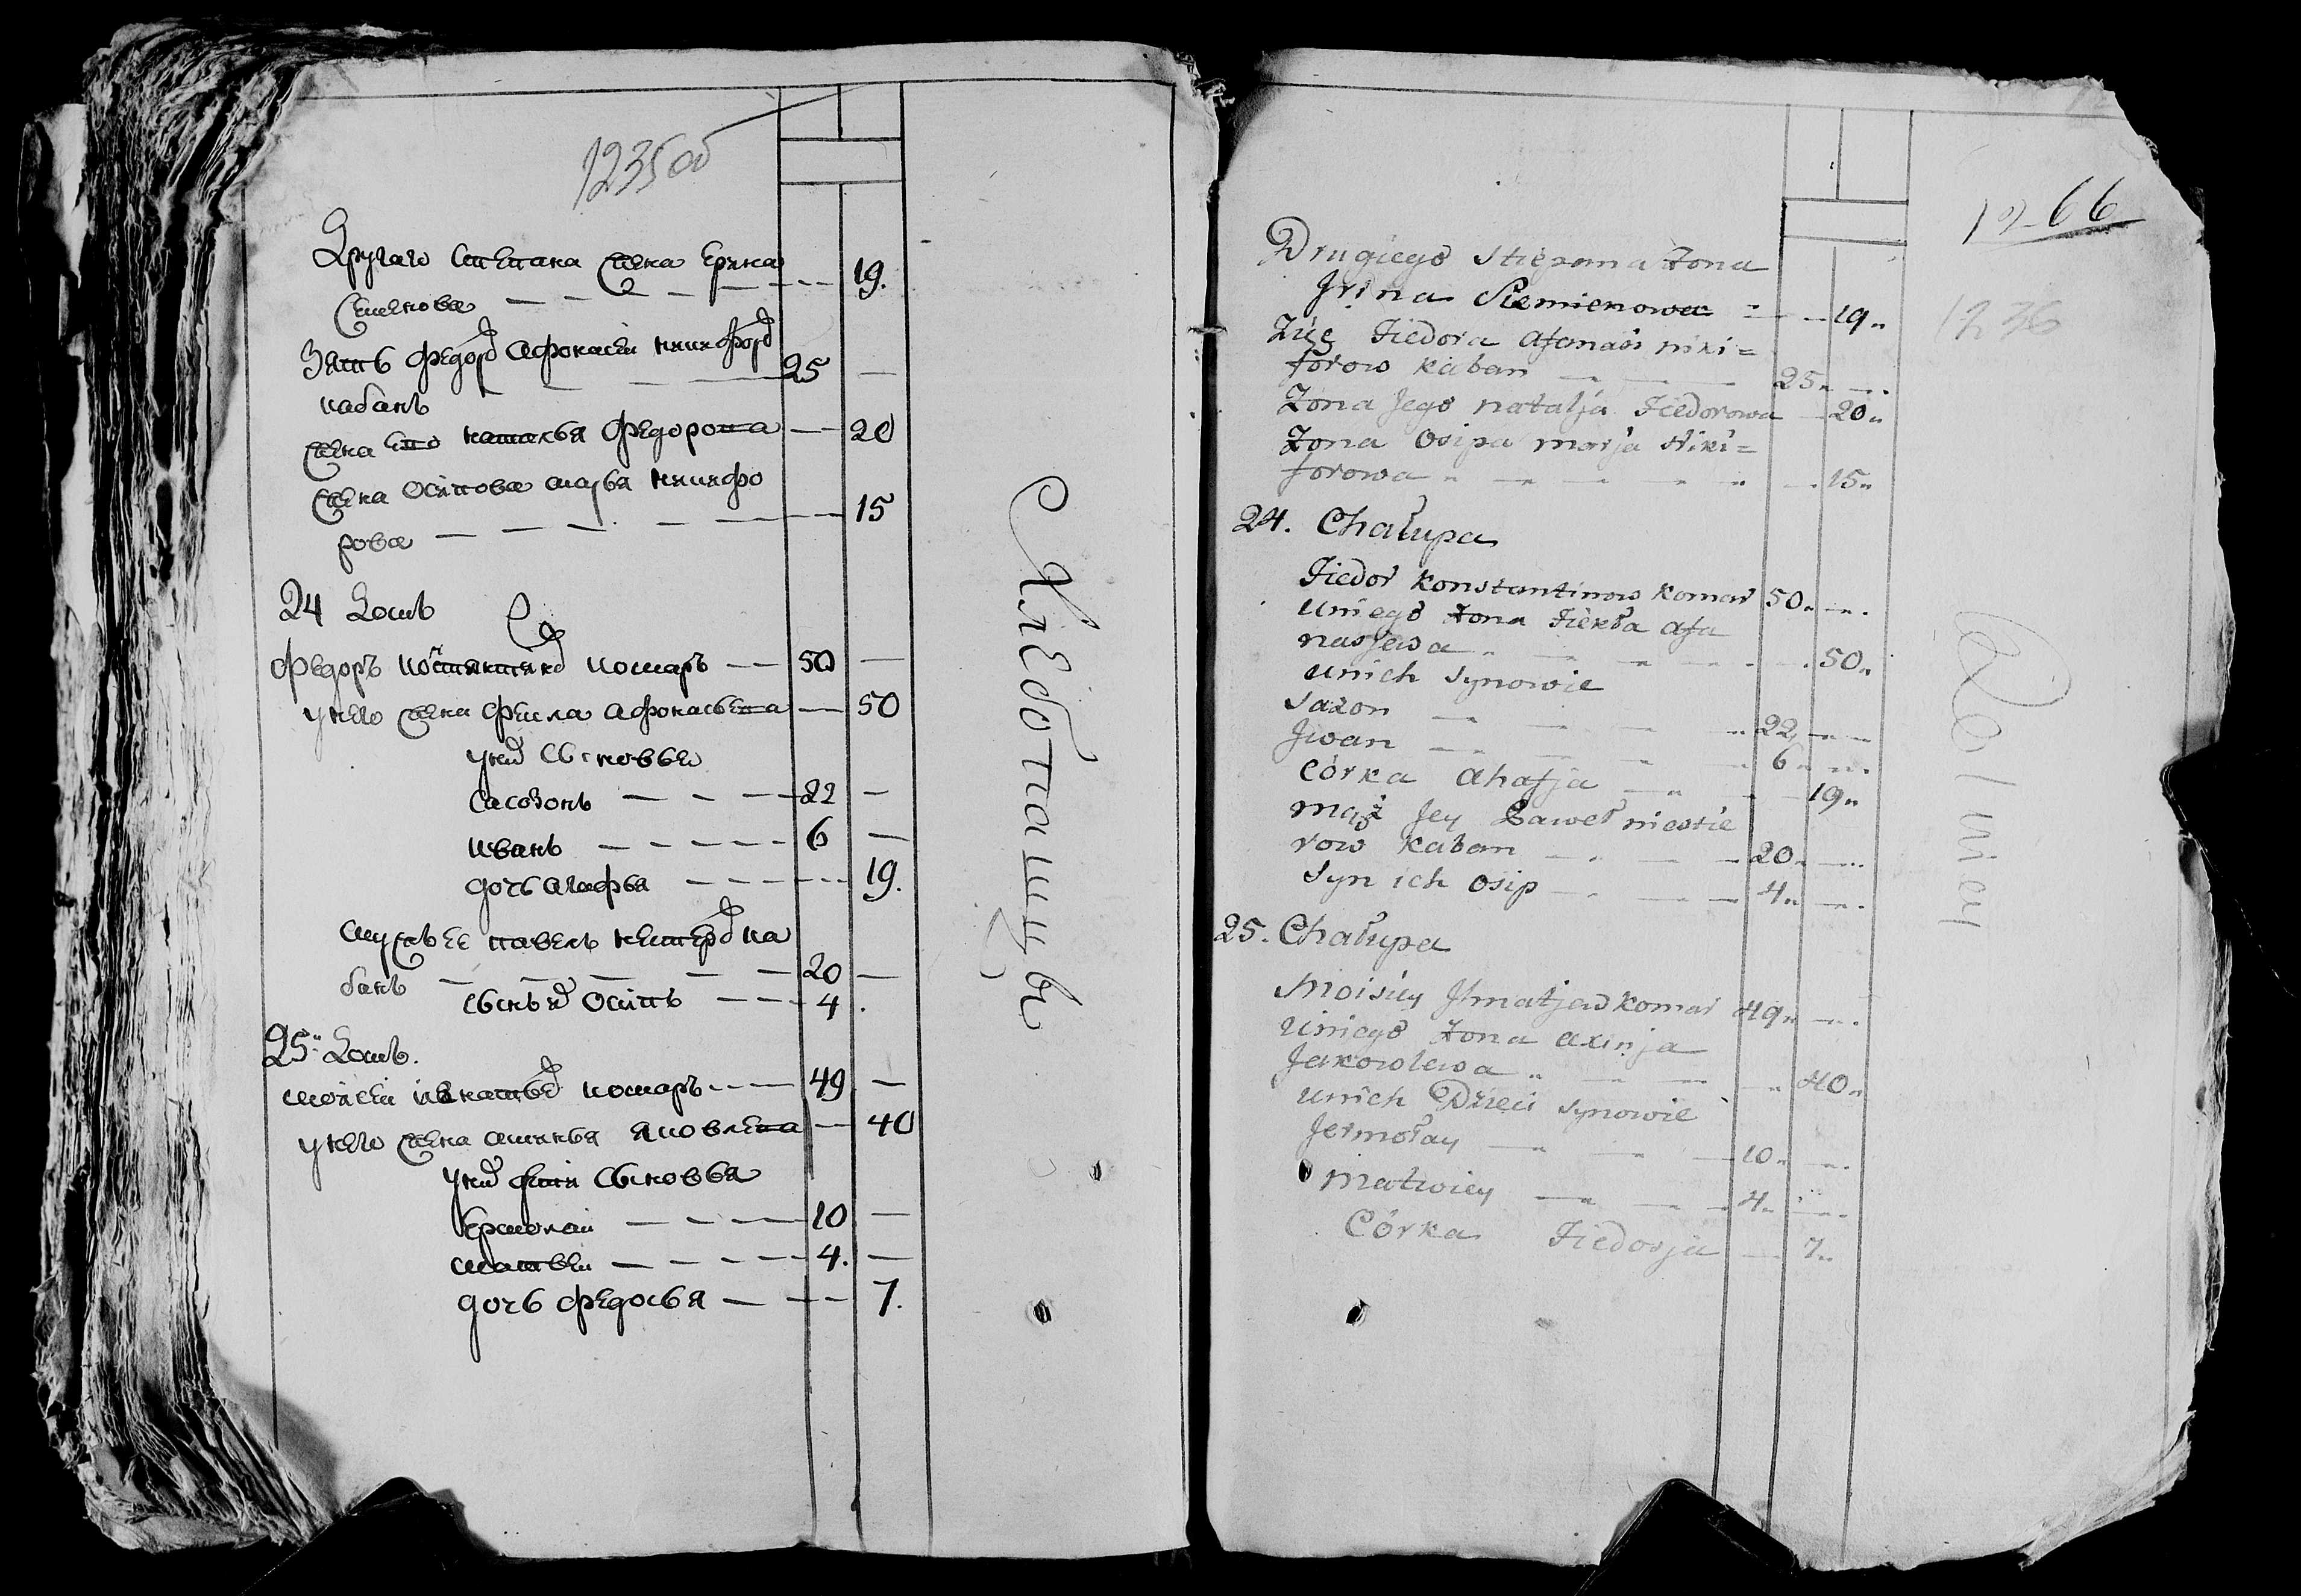 1235 об
Другаго Степана жена Ерина
Семенова 19.
Зять Федора Афонасей Никифоров
кабанъ 25
жена его наталья Федорова 20
жена Осипова марья Никифо
рова 15
24 Домъ
Федоръ костянтинов комаръ 50
у него жена Фекла Афонасьева 50
у них сыновьи
Сасонъ 22
Иванъ 6
дочь агафья 19.
мужъ ее павелъ нестеров ка
банъ 20
сынъ их Осипъ 4
25 Домъ.
моисей игнатьев комаръ 49
у него жена аксинья яковлева 40
у них дети сыновья
Ермолай 10
матвей 4.
дочь федосья 7.
Хлебопашцы
Drugiego Stiepana Żona
Jrina Siemienowa 19
Zięc Fiedora Afanasi niki=
forow kaban 25
Żona Jego natalja Fiedorowa 20
Żona Osipa marja Niki=
forowa 15
24. Chałupa
Fiedor konstantinow komar 50
Uniego Żona Fiekła Afa
nasjewa 50
Unich Synowie
Sazon 22
Jwan 6
Córka Ahafja 19
Mąż Jey Paweł niestie
row kaban 20
Syn ich Osip 4
25. Chałupa
Moisiey Jhnatjew komar 49
Uniego Żona Axinja
Jakowlewa 40
Unich Dzieci Synowie
Jermołay 10
Matwiey 4
Córka Fiedosja 7
66
1236
Rolniey